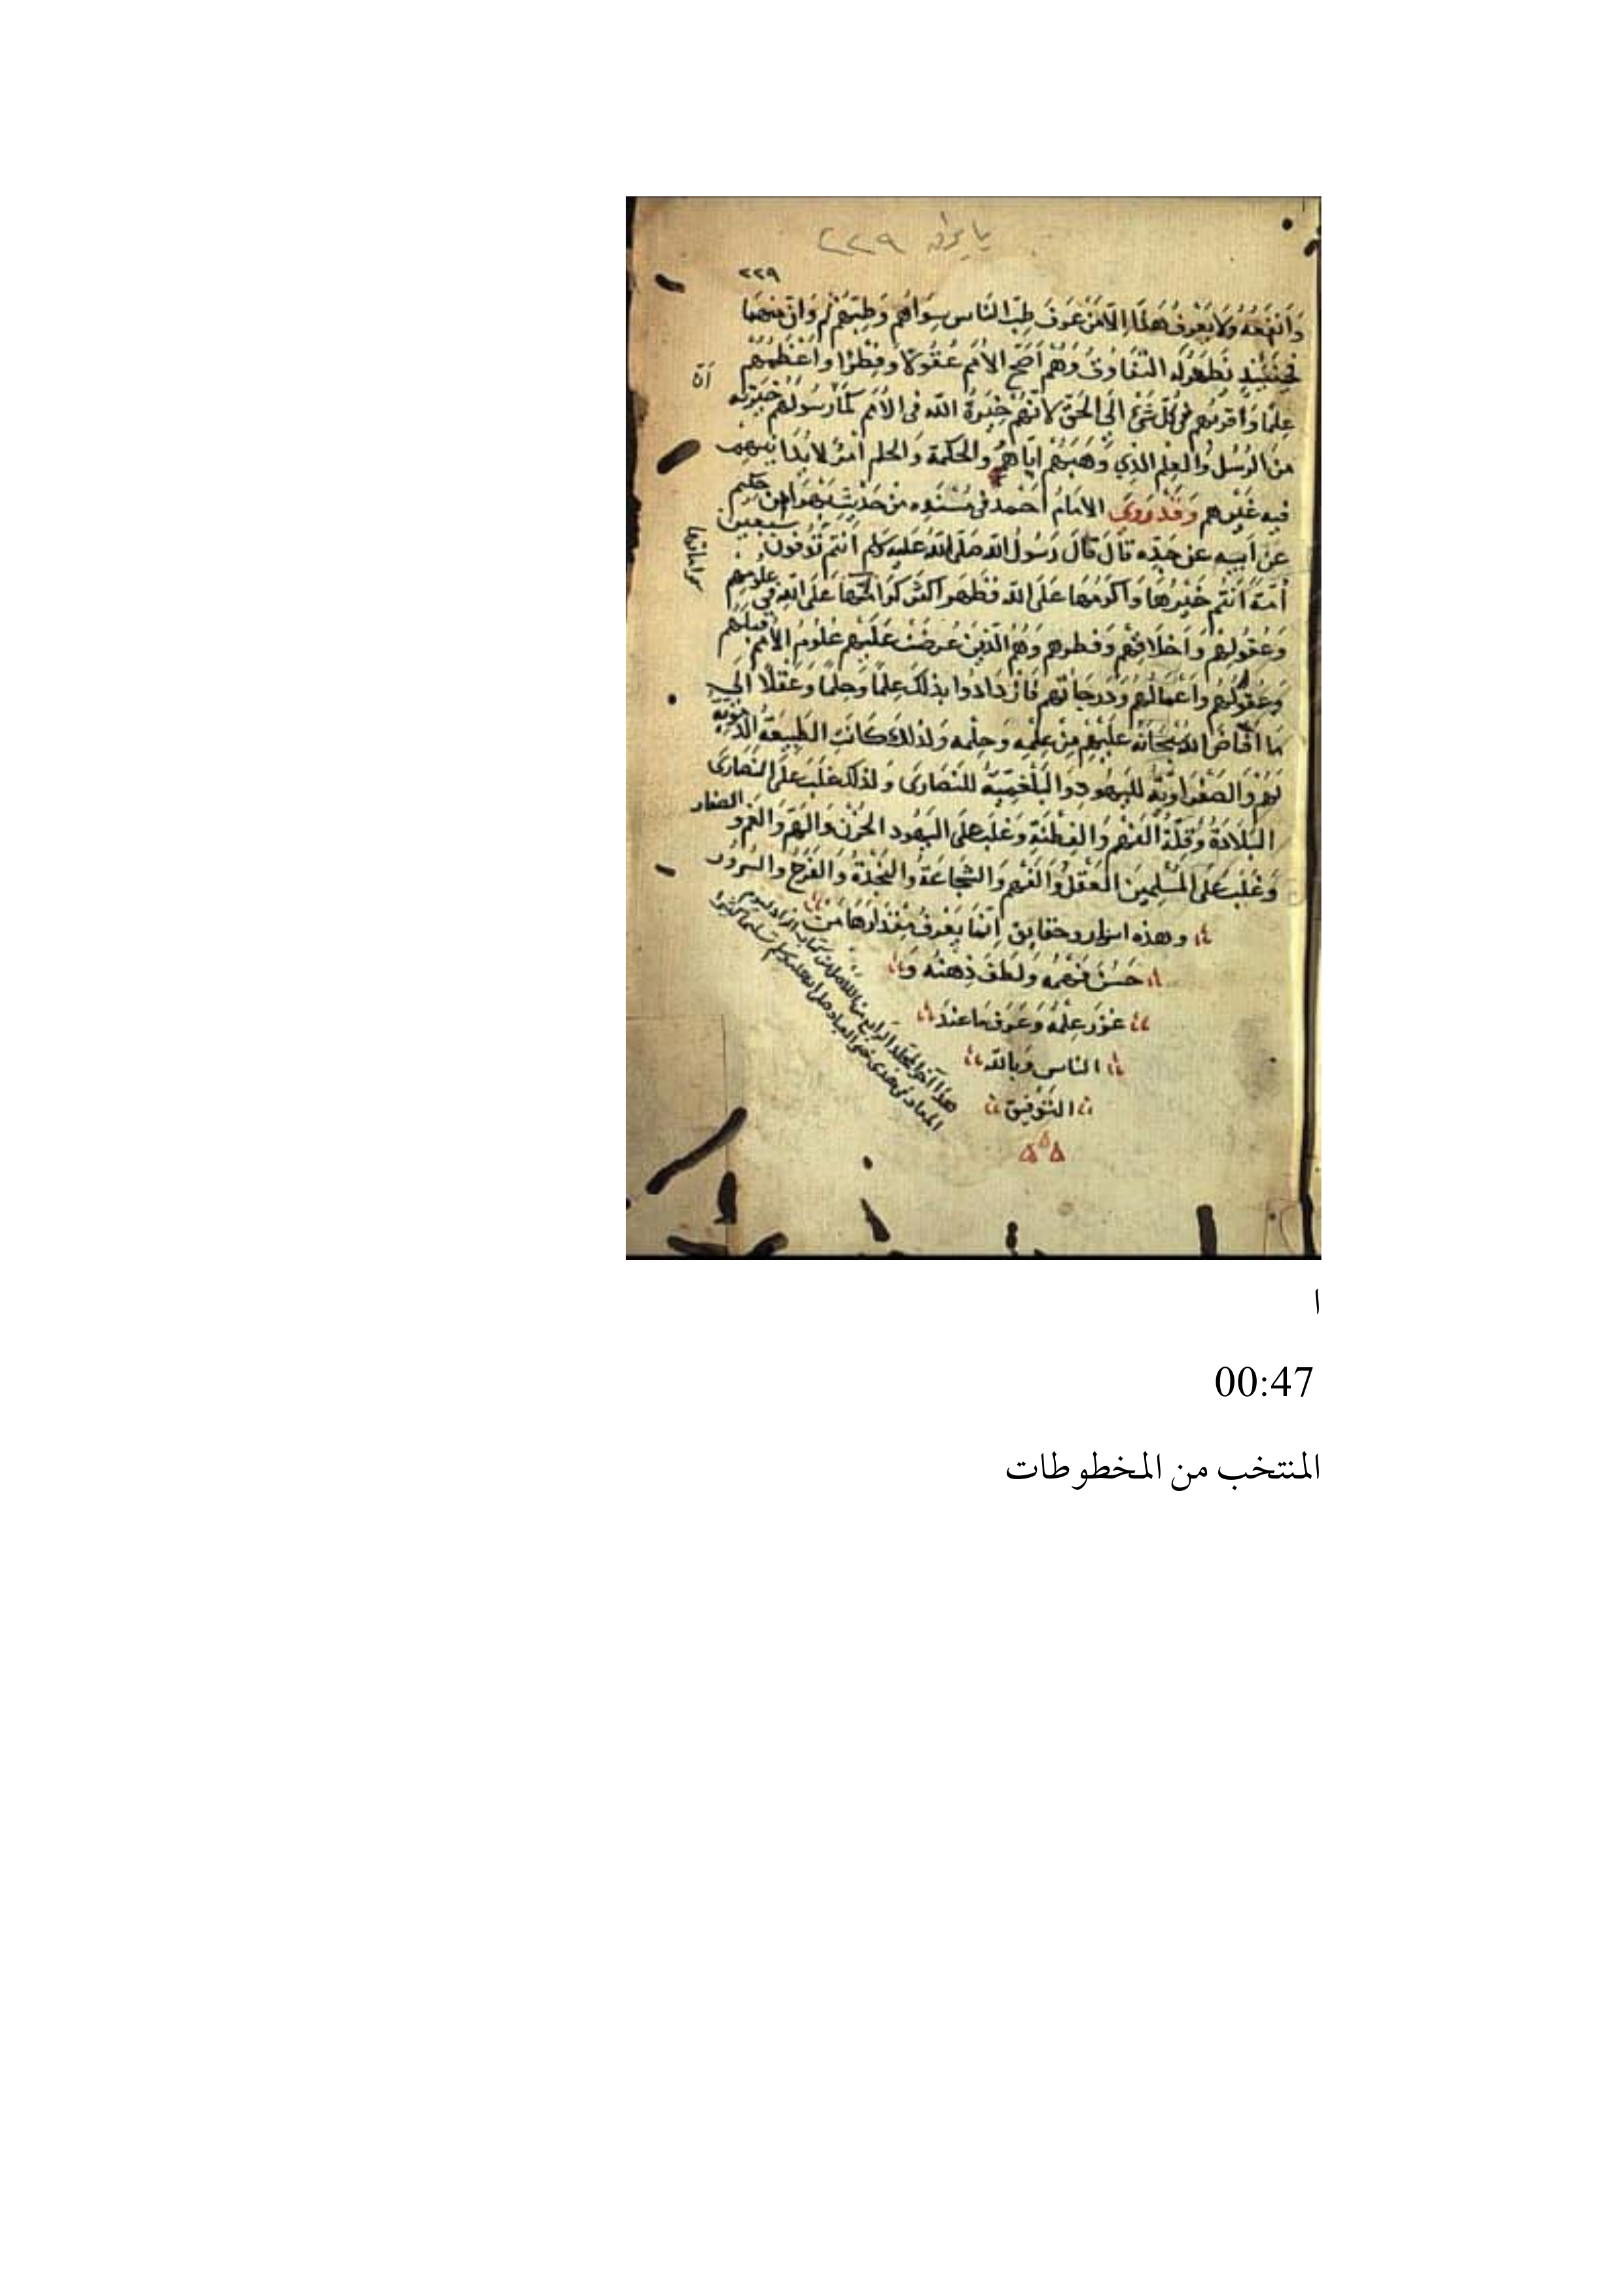 ٢٢٩
٢٢٩
وَأَنْفَعُهُ وَلَا يَعْرِفُ هَذَا إِلَّا مَنْ عَرَفَ طِبَّ النَّاسِ سِوَاهُم وَطِبَّهُمْ ثم وَازَنَ بينهما
فَحِينَئِذٍ يَظهَرُ لَه التفَاوتُ وَهُم أَصَحُّ الأُمَمِ عُقُولًا وَفِطَرًا وأَعْظَمُهُمْ
عِلمًا وَأقربُهم فِي كُلِّ شَيْءٍ إلَى الحَقِّ لِأنَّهُمْ خِيَرَةُ الله في الأُمَمِ كَمَا رسُولهُم خِيَرَته
مِنَ الرُّسُل وَالعِلم الذِي وَهَبَهُمْ إيَّاهُ والحِكمَة وَالحلم أمْرٌ لا يُدَانِيهِم
فيه غَيْرهم وَقَدْ رَوَى الإمَامُ أحْمَد في مُسْنَدِه مِنْ حَدِيْث بَهْز بن حَكِيم
عَنْ أبيهِ عن جَدِّه قَالَ قَالَ رَسُولُ الله صَلَى اللهُ عَليه وسَلم أَنتم تُوفُونَ سَبعِين
أُمَّةً أَنتُم خَيْرُهَا وَأكْرَمُهَا عَلَى الله فظَهَر أثر كرَامَتهَا عَلَى اللهِ في عُلُومِهم
وَعُقُولهِم وَأخلَاقِهُم وَفِطرِهِم وَهُم الَّذِينَ عُرِضَتْ عَلَيْهِم عُلُومُ الأُمَمِ قَبْلَهُم
وَعُقُولهُم وَأعْمَالهُم وَدَرَجَاتهُم فَازْدَادُوا بذلِكَ عِلمًا وَحِلمًا وَعَقْلًا إلَى
مَا أفَاضَ اللهُ سُبْحَانَه عَلَيْهِمْ مِنْ عِلْمِه وَحِلْمِه وَلذلِكَ كَانَتِ الطَّبِيعَةُ الدَّمَوِيه
لهم وَالصَّفْرَاوِيَّةُ لِليَهُودِ وَالبَلْغَمِيَّة للنَّصَارَى وَلذلِكَ غَلَبَ عَلَى النَّصَارَى
البَلَادَةُ وَقِلَّةُ الفَهْم وَالفِطْنَةِ وَغَلَبَ عَلَى اليَهُود الحُزْن وَالهَمّ وَالغَمّ وَالصغار
وَغَلَبَ عَلَى المُسْلِمِينَ العَقْلُ وَالفَهْم وَالشَّجَاعَةُ وَالنَّجْدَةُ وَالفَرَحُ وَالسُّرُورُ
وهذه اسرار وحقَايِق إنَّمَا يَعْرِفُ مِقْدَارَهَا مَنْ
حَسُنَ فَهمُه ولَطُفَ ذِهنُه وَ
غزرَ عِلْمُهُ وَعَرَفَ مَا عِنْدَ
الناس وَبالله
التَّوْفِيق
هذا آخر المجلد الرابع من كتاب الزاد ليوم
المعاد في هدي خير العباد صلى الله عليه وسلم تسليما كثيرا
ا
00:47
المنتخب من المخطوطات